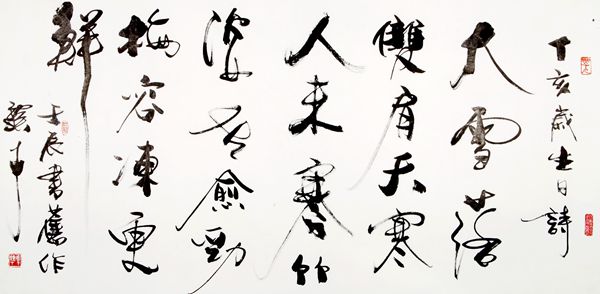 丁亥歲生日詩
大雪落
雙肩天寒
人未寒竹
姿老愈勁
梅容凍更
鮮
壬辰書舊作